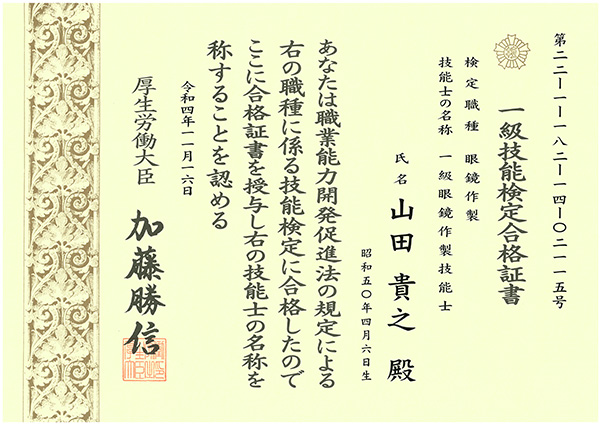 第二二ー一ー一八二ー一四ー〇二一一五号
一級技能検定合格証書
検定職種 眼鏡作製
技能士の名称 一級眼鏡作製技能士
氏名 山田貴之 殿
昭和五〇年四月六日生
あなたは職業能力開発促進法の規定による
右の職種に係る技能検定に合格したので
ここに合格証書を授与し右の技能士の名称を
称することを認める
令和四年一一月一六日
厚生労働大臣 加藤勝信